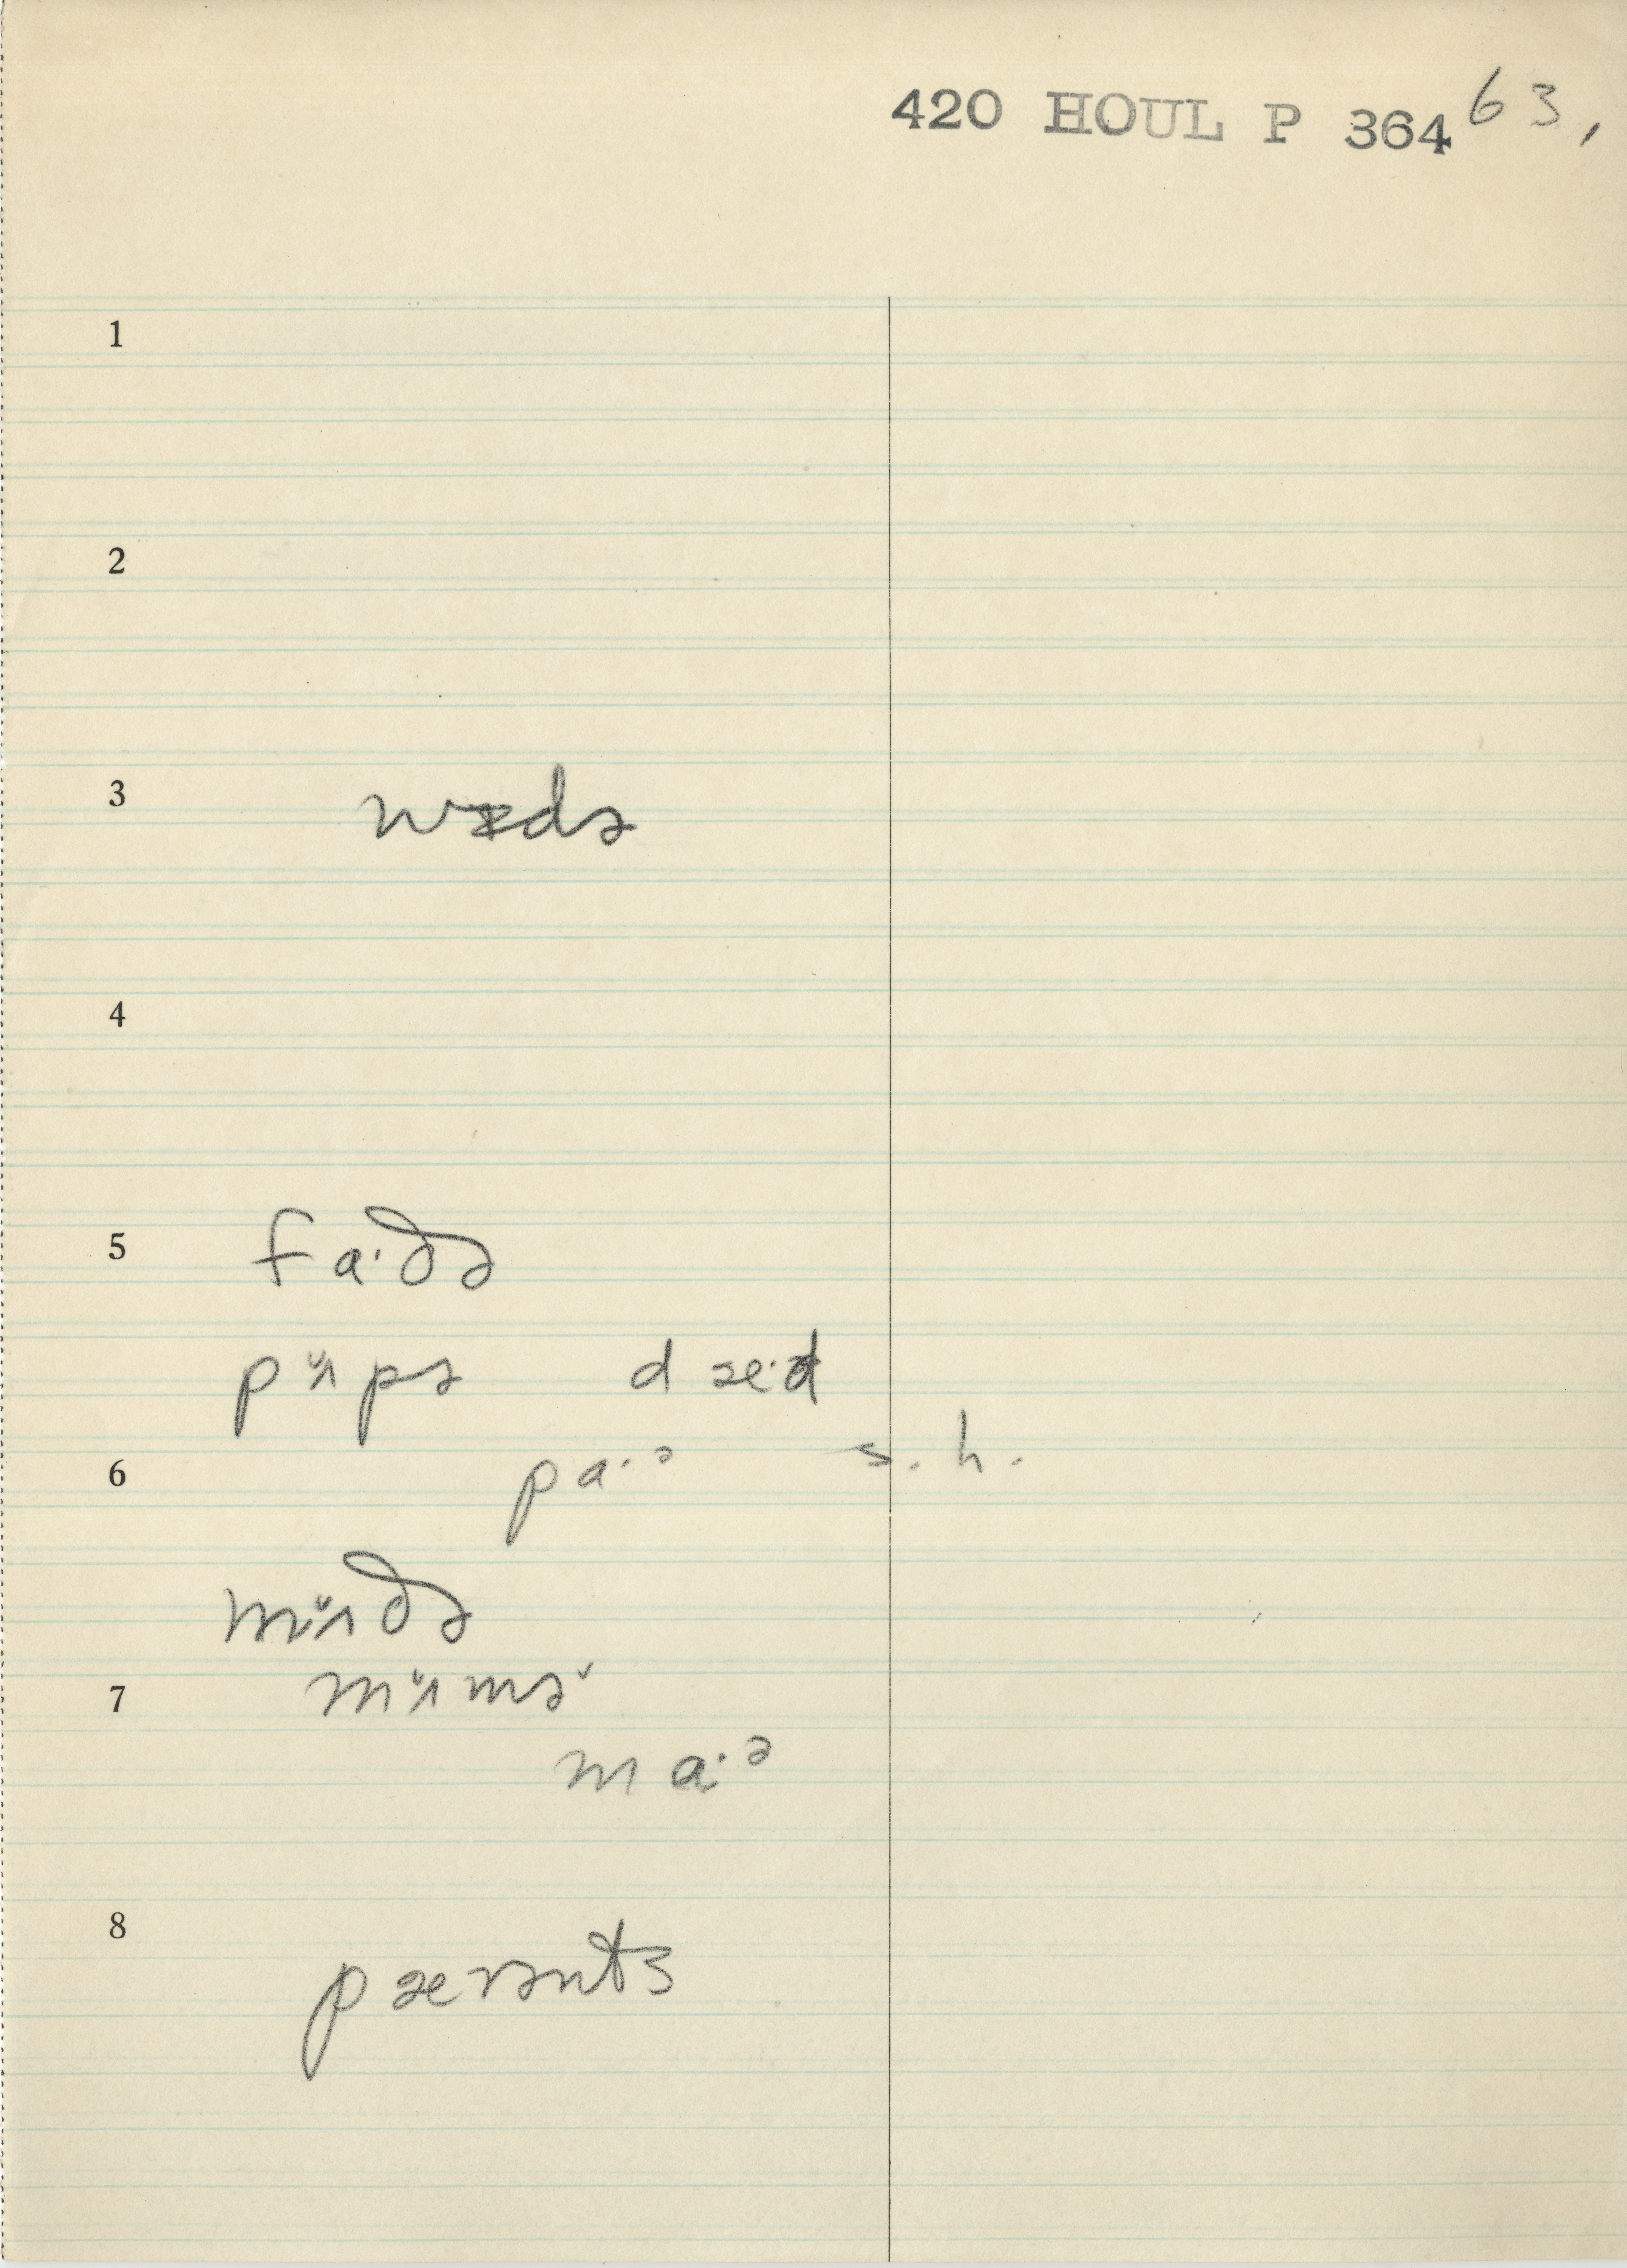 420 HOUL P 364 63,
1
2
3
4
5 fa·ðə
pʌpə dæ·d
6 pa·ə s. h.
mʌðə
7 mʌmə
ma·ə
8 pærənts